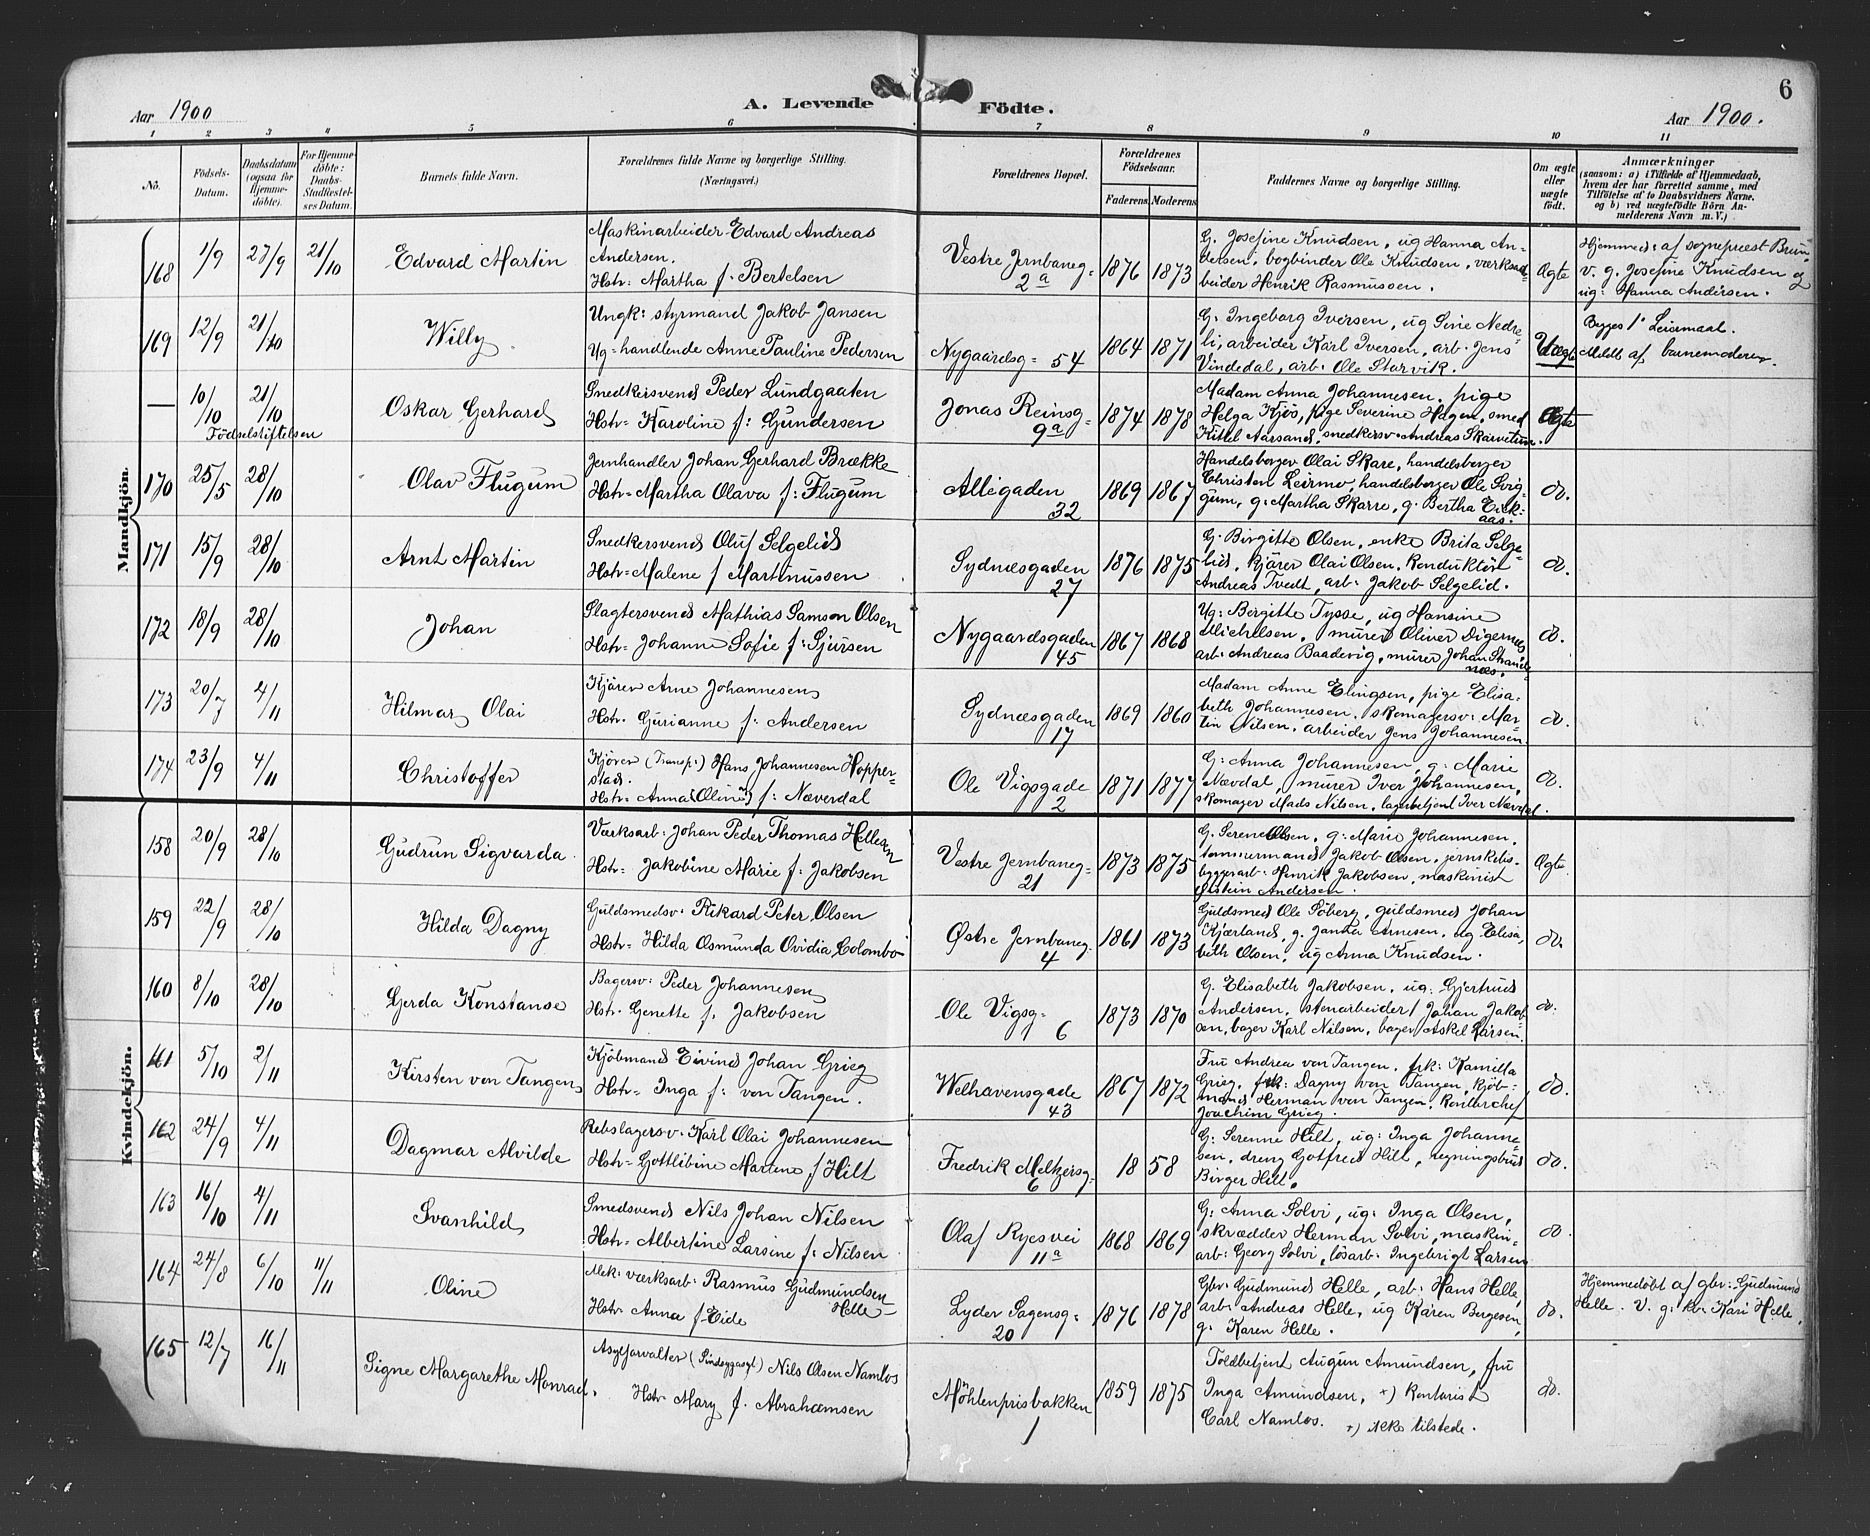 6
Aar 1900 A. Levende Födte. Aar 1900.
1 2 3 4 5 6 7 8 9 10 11
No. Födsels-Datum. Daabsdatum (ogsaa for Hjemme-döbte). For Hjemme-döbte: Daabs-Stadfæstel-ses Datum. Barnets fulde Navn. Forældrenes fulde Navne og borgerlige Stilling. (Næringsvei.) Forældrenes Bopæl. Forældrenes Födselsaar. Faderens Moderens Faddernes Navne og borgerlige Stilling. Om ægte eller uægte født. Anmærkninger
(saasom: a) i Tilfælde af Hjemmedaab,
hvem der har forrettet samme, med
Tilföielse af to Daabsvidners Navne,
og b) ved uægtefödte Börn An-
melderens Navn m. V.)
Mandkjön.
168 1/9 23/9 21/10 Edvard Martin
Maskinarbeider Edvard Andreas
Andersen.
Hstr: Martha f. Bertelsen
Vestre Jernbaneg-
2a
1876 1873
G. Josefine Knudsen, ug Hanna An-
dersen, bogbinder Ole Knudsen, værksar-
beider Henrik Rasmussen.
Ægte
Hjemmed: af sognepræst Brun,
v. g. Josefine Knudsen og
ug: Hanna Andersen.
169 12/9 21/10 Willy
Ungk: styrmand Jakob Jansen
Ug= handlende Anne Pauline Pedersen
Nygaardsg= 54
1864 1871
G. Ingeborg Iversen, ug Sine Nedre-
li, arbeider Karl Iversen, arb. Jens
Vindedal, arb. Ole Storvik.
Uægte
Begges 1ste Leiermaal.
Meldt af barnemoderen.
— 10/10 21/10 Oskar Gerhard
Födselstiftelsen
Snedkersvend Peder Lundgaaten
Hstr= Karoline f: Gundersen
Jonas Reinsg=
9a
1874 1878
Madam Anna Johannesen, pige
Helga Kjös, pige Severine Hagen, smed
Kittel Aarsand, snedkersv. Andreas Skarvetun.
Ægte
170 25/5 28/10 Olav Flugum
Jernhandler Johan Gerhard Brække
Hstr= Martha Olava f: Flugum
Allégaden
32
1869 1867
Handelsborger Olai Skare, handelsborger
Christen Leirmo, handelsborger Ole Svig-
gum, g: Martha Skarre, g. Bertha Eick-
aas.
do.
171 15/9 28/10 Arnt Martin
Snedkersvend Oluf Selgelid
Hstr= Malene f Martinussen
Sydnæsgaden
27
1876 1875
G. Birgitte Olsen, enke Brita Selge-
lid, kjører Olai Olsen, Konduktör
Andreas Tvedt, arb. Jakob Selgelid.
do.
172 18/9 28/10 Johan
Slagtersvend Mathias Samson Olsen
Hstr= Johanne Sofie f: Sjursen
Nygaardsgaden
45
1867 1868
Ug: Bergitte Tysse, ug Hansine
Michelsen, murer Oliver Digernes,
arb: Andreas Baadevig, murer Johan Strand-
næs.
do.
173 20/7 4/11 Hilmar Olai
Kjörer Arne Johannesen
Hstr. Gurianne f: Andersen
Sydnæsgaden
17
1869 1860
Madam Anne Elingsen, pige Elisa-
beth Johannesen, skomagersv: Mar-
tin Nilsen, arbeider Jens Johannesen.
do.
174 23/9 4/11 Christoffer
Kjörer (Transp:) Hans Johannesen Hopper-
stad.
Hstr= Anna (Oline) f: Næverdal
Ole Vigsgade
2
1871 1877
G: Anna Johannesen, g: Marie
Nævdal, murer Iver Johannesen,
skomager Mads Nilsen, lagerbetjent Iver Nævdal.
do.
Kvindekjön.
158 20/9 28/10 Gudrun Sigvarda
Værksarb: Johan Peder Thomas Hellesen
Hstr= Jakobine Marie f: Jakobsen
Vestre Jernbaneg=
21
1873 1875
G. Serene Olsen, g: Marie Johannesen,
tømmermand Jakob Olsen, jernskibs-
byggerarb: Henrik Jakobsen, maskinist
Østein Andersen.
Ægte
159 22/9 28/10 Hilda Dagny
Guldsmedsv: Rikard Peter Olsen
Hstr= Hilda Osmunda Ovidia Colombo
Østre Jernbaneg.
4
1861 1873
Guldsmed Ole Söberg, guldsmed Johan
Kjærland, g. Janna Arnesen, ug Elisa-
beth Olsen, ug Anna Knudsen.
do.
160 8/10 28/10 Gerda Konstanse
Bagersv: Peder Johannesen
Hstr. Genette f. Jakobsen
Ole Vigsg=
6
1873 1870
G. Elisabeth Jakobsen, ug: Gjertrud
Andersen, stenarbeider Johan Jakob-
sen, bager Karl Nilsen, bager Askel Larsen.
do.
161 5/10 2/11 Kirsten von Tangen
Kjöbmand Eivind Johan Grieg
Hstr= Inga f: von Tangen.
Welhavensgade
43
1867 1872
Fru Andrea von Tangen, frk: Kamilla
Grieg, frk: Dagny von Tangen, kjöb-
mand Herman von Tangen, Kontorchef
Joachim Grieg.
do.
162 24/9 4/11 Dagmar Alvilde
Rebslagersv. Karl Olai Johannesen
Hstr= Gottlibine Martine f Hilt
Fredrik Meltzersg.
6
18 58
G: Serenne Hilt, ug: Inga Johanne-
sen, dreng Gotfred Hilt, regningsbud
Birger Hilt.
do.
163 16/10 4/11 Svanhild
Smedsvend Nils Johan Nilsen
Hstr= Albertine Larsine f: Nilsen
Olaf Ryesvei
11a
1868 1869
G: Anna Solvi, ug: Inga Olsen,
skrædder Herman Solvi, maskin-
arb: Georg Solvi, lösarb. Ingebrigt Larsen
do.
164 24/8 6/10 11/11 Oline
Mek: værksarb: Rasmus Gudmundsen
Helle
Hstr. Anna f Eide
Lyder Sagensg=
20
1876 1878
Gbr: Gudmund Helle, arb: Hans Helle,
arb: Andreas Helle, ug Karen Bergesen,
g. Karen Helle.
do.
Hjemmedøbt af gbr: Gudmund
Helle. V. g: kv: Kari Helle.
165 12/7 16/11 Signe Margarethe Monrad.
Asylforvalter (Sindsygeasyl) Nils Olsen Namlos
Hstr Mary f. Abrahamsen
Möhlenprisbakken
1
1859 1875
Toldbetjent Augun Amundsen, fru
Inga Amundsen, +) kontorist
Carl Namlos. +) ikke tilstede.
do.